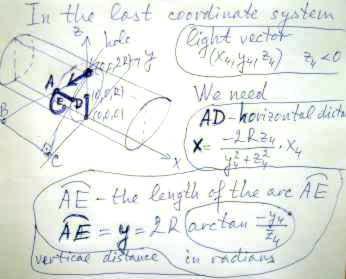 In the last coordinate system
z
hole
(0,0,2R)
y
light vector
(x₄, y₄, z₄) z₄<0
A
(0,0,R)
E
D
(0,0,0)
B
C
x
We need
AD - horizontal dista
x = -2Rz₄ / (y₄² + z₄²) · x₄
AE - the length of the arc AE
AE = y = 2R arctan -y₄ / z₄
vertical distance in radians